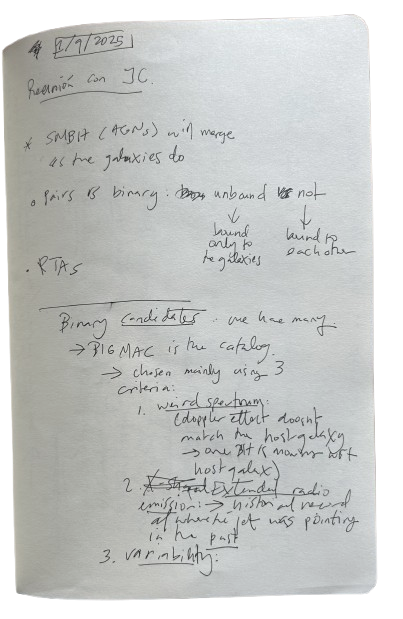 1/9/2025
Reunión con JC.
* SMBH (AGNs) will merge
as the galaxies do
• Pairs vs binary: unbound vs not
↓ ↓
bound only to the galaxies
bound to each other
• RTAs
Binary candidates. we have many
→ BIGMAC is the catalog.
→ chosen mainly using 3
criteria:
1. weird spectrum:
(doppler effect doesnt
match the host galaxy
→ one BH is moving wrt
host galax)
2. Extended radio
emission: → historical record
of where the jet was pointing
in the past
3. variability: